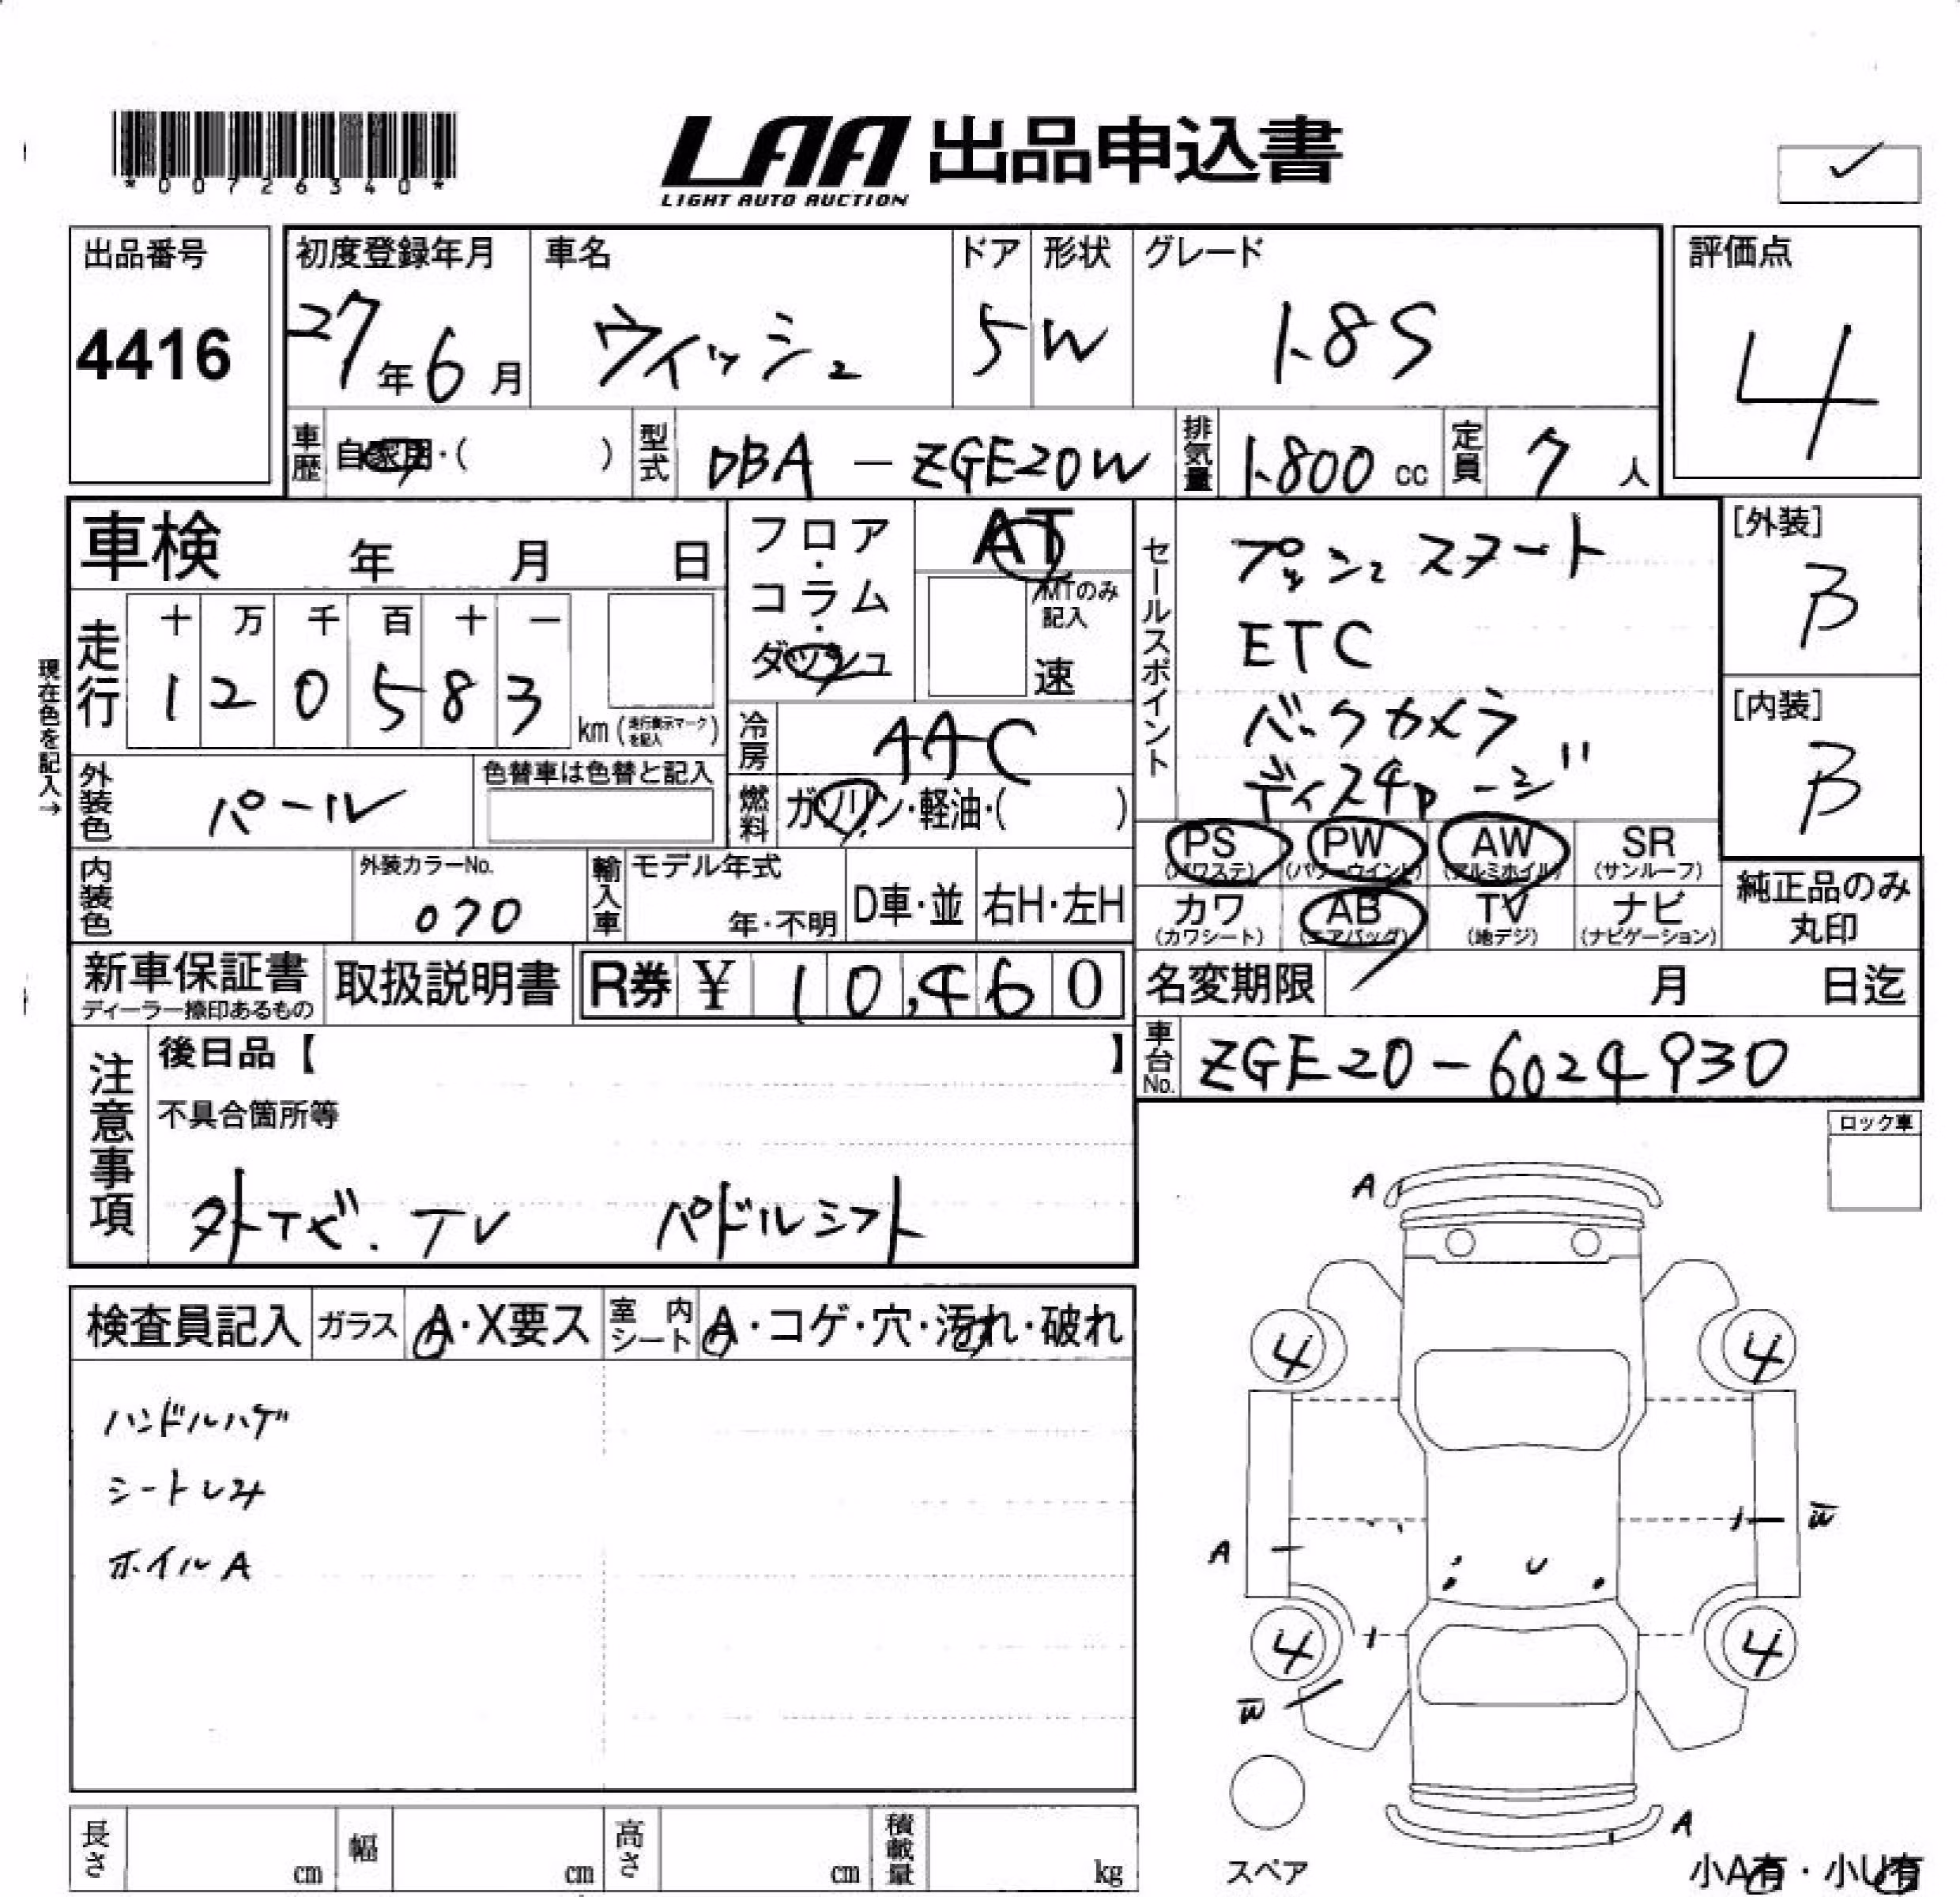 *00726340*
LAA 出品申込書
LIGHT AUTO AUCTION
出品番号
4416
初度登録年月
27年6月
車名
ウィッシュ
ドア
5
形状
W
グレード
1.8S
評価点
4
車歴
自家用・( )
型式
DBA - ZGE20W
排気量
1.800 cc
定員
7 人
車検 年 月 日
フロア・コラム・ダッシュ
AT
MTのみ記入
速
セールスポイント
プッシュスタート
ETC
バックカメラ
ディスチャージ
[外装]
B
[内装]
B
現在色を記入→
走行
十 万 千 百 十 一
1 2 0 5 8 3
km (走行表示マークを記入)
冷房
AAC
外装色
パール
色替車は色替と記入
燃料
ガソリン・軽油・( )
PS (パワステ)
PW (パワーウインド)
AW (アルミホイル)
SR (サンルーフ)
カワ (カワシート)
AB (エアバッグ)
TV (地デジ)
ナビ (ナビゲーション)
純正品のみ丸印
内装色
外装カラーNo.
070
輸入車
モデル年式
年・不明
D車・並
右H・左H
新車保証書
ディーラー捺印あるもの
取扱説明書
R券 ¥ 10,460
名変期限 月 日迄
車台No.
ZGE20-6024930
注意事項
後日品【 】
不具合箇所等
外ナビ. TV パドルシフト
ロック車
検査員記入
ガラス
A・X要ス
室内シート
A・コゲ・穴・汚れ・破れ
ハンドルハゲ
シートシミ
ホイルA
A
4 4
A
W
U
4 4
W
A
スペア
小A有・小U有
長さ cm
幅 cm
高さ cm
積載量 kg